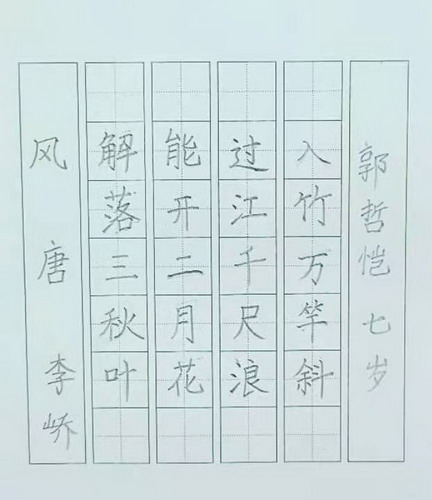 风 唐 李峤
解落三秋叶
能开二月花
过江千尺浪
入竹万竿斜
郭哲恺 七岁